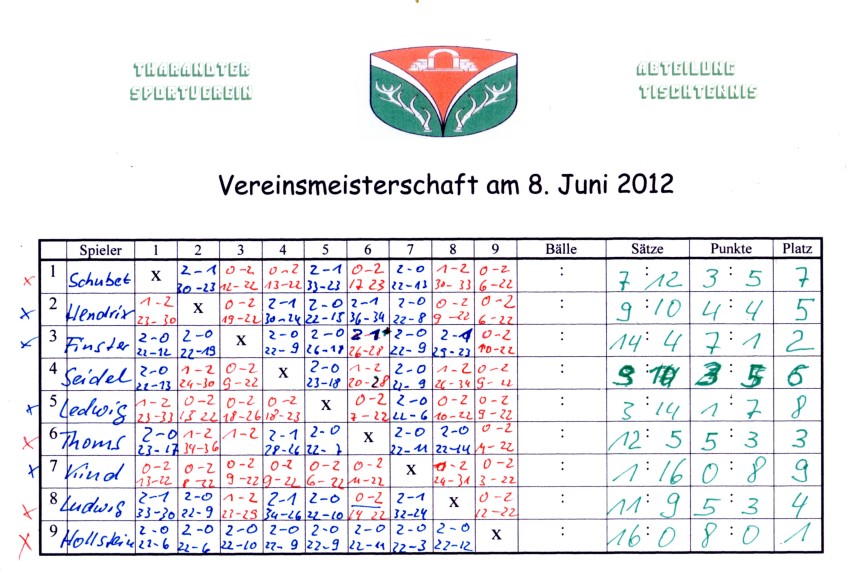 THARANDTER
SPORTVEREIN
ABTEILUNG
TISCHTENNIS
Vereinsmeisterschaft am 8. Juni 2012
Spieler 1 2 3 4 5 6 7 8 9 Bälle Sätze Punkte Platz
x 1 Schubet X 2-1 0-2 0-2 2-1 0-2 2-0 1-2 0-2 : 7:12 3:5 7
30-23 12-22 13-22 33-23 17 23 22-13 30-33 6-22
x 2 Hendrix 1-2 X 0-2 2-1 2-0 2-1 2-0 0-2 0-2 : 9:10 4:4 5
23-30 19-22 30-24 22-15 36-34 22-8 9-22 6-22
x 3 Finster 2-0 2-0 X 2-0 2-0 2-1 2-0 2-1 0-2 : 14:4 7:1 2
22-12 22-19 22-9 26-18 26-28 22-9 29-23 10-22
4 Seidel 2-0 1-2 0-2 X 2-0 1-2 2-0 1-2 0-2 : 9:10 3:5 6
22-13 24-30 9-22 23-18 20-28 22-9 26-34 9-22
x 5 Ledwig 1-2 0-2 0-2 0-2 X 0-2 2-0 0-2 0-2 : 3:14 1:7 8
23-33 15 22 18-26 18-23 7-22 22-6 10-22 9-22
x 6 Thoms 2-0 1-2 1-2 2-1 2-0 X 2-0 2-0 0-2 : 12:5 5:3 3
23-17 34-36 28-20 22-7 22-11 22-14 22
x 7 Kind 0-2 0-2 0-2 0-2 0-2 0-2 X 0-2 0-2 : 1:16 0:8 9
13-22 8-22 9-22 9-22 6-22 11-22 24-31 3-22
x 8 Ludwig 2-1 2-0 1-2 2-1 2-0 0-2 2-1 X 0-2 : 11:9 5:3 4
33-30 22-9 23-29 34-26 22-10 14 22 32-24 12-22
x 9 Hollstein 2-0 2-0 2-0 2-0 2-0 2-0 2-0 2-0 X : 16:0 8:0 1
22-6 22-6 22-10 22-9 22-9 22-11 22-3 22-12